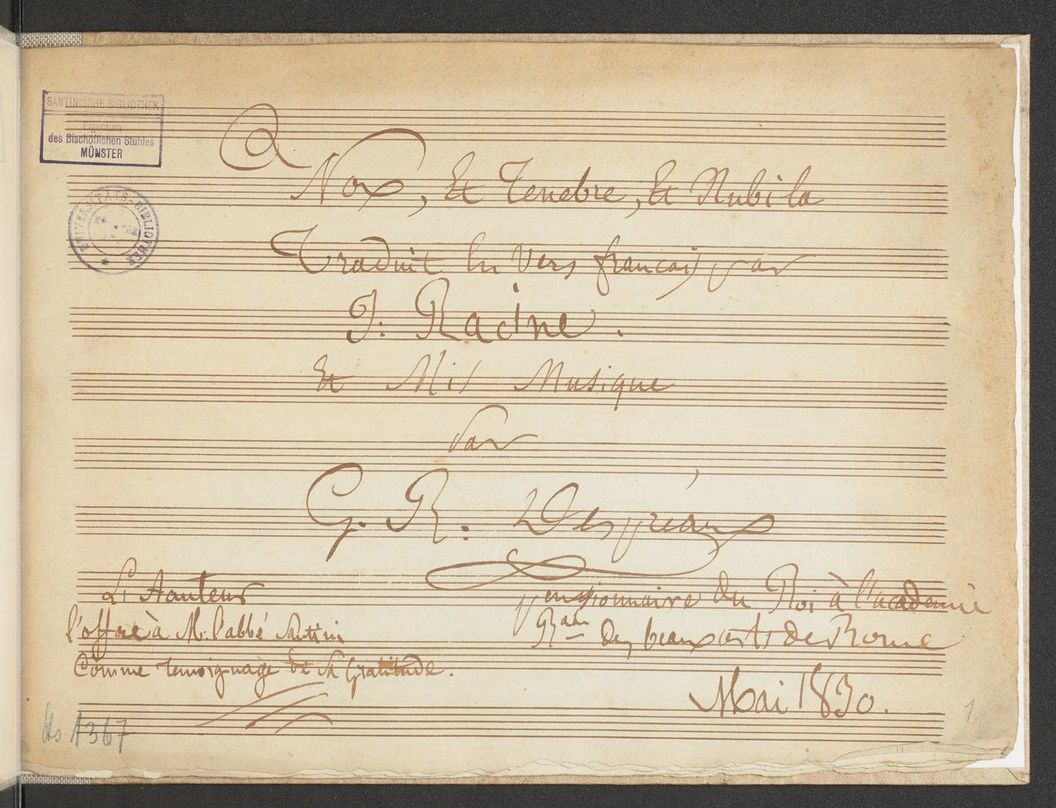 SANTINISCHE BIBLIOTHEK
Eigentum
des Bischöflichen Stuhles
MÜNSTER
UNIVERSITÄTS-BIBLIOTHEK
Nox, Et Tenebre, Et Nubila
Traduit En Vers français par
J. Racine.
Et Mis Musique
Par
G. R. Despréaux
L'Auteur
l'offre à M. l'abbé Santini
Comme temoignage de sa Gratitude.
pensionnaire du Roi à l'academie
des beaux arts de Rome
Mai 1830.
Hs 1367
1